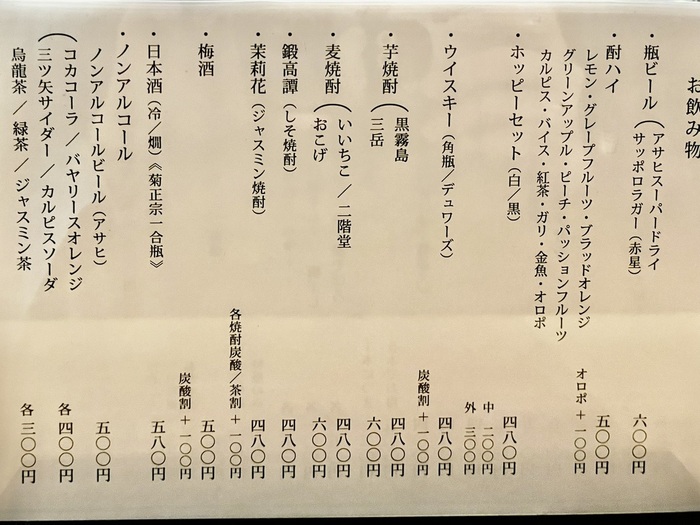 お飲み物
・瓶ビール（アサヒスーパードライ
サッポロラガー（赤星） 六〇〇円
・酎ハイ 五〇〇円
レモン・グレープフルーツ・ブラッドオレンジ
グリーンアップル・ピーチ・パッションフルーツ
カルピス・バイス・紅茶・ガリ・金魚・オロポ
オロポ＋一〇〇円
・ホッピーセット（白／黒） 四八〇円
中 二〇〇円
外 三〇〇円
・ウイスキー（角瓶／デュワーズ） 四八〇円
炭酸割＋一〇〇円
・芋焼酎（黒霧島 四八〇円
三岳 六〇〇円
・麦焼酎（いいちこ／二階堂 四八〇円
おこげ 六〇〇円
・鍛高譚（しそ焼酎） 四八〇円
・茉莉花（ジャスミン焼酎） 四八〇円
各焼酎炭酸／茶割＋一〇〇円
・梅酒 五〇〇円
炭酸割＋一〇〇円
・日本酒（冷／燗）《菊正宗一合瓶》 五八〇円
・ノンアルコール
ノンアルコールビール（アサヒ） 五〇〇円
（コカコーラ／バヤリースオレンジ
三ツ矢サイダー／カルピスソーダ 各四〇〇円
烏龍茶／緑茶／ジャスミン茶 各三〇〇円